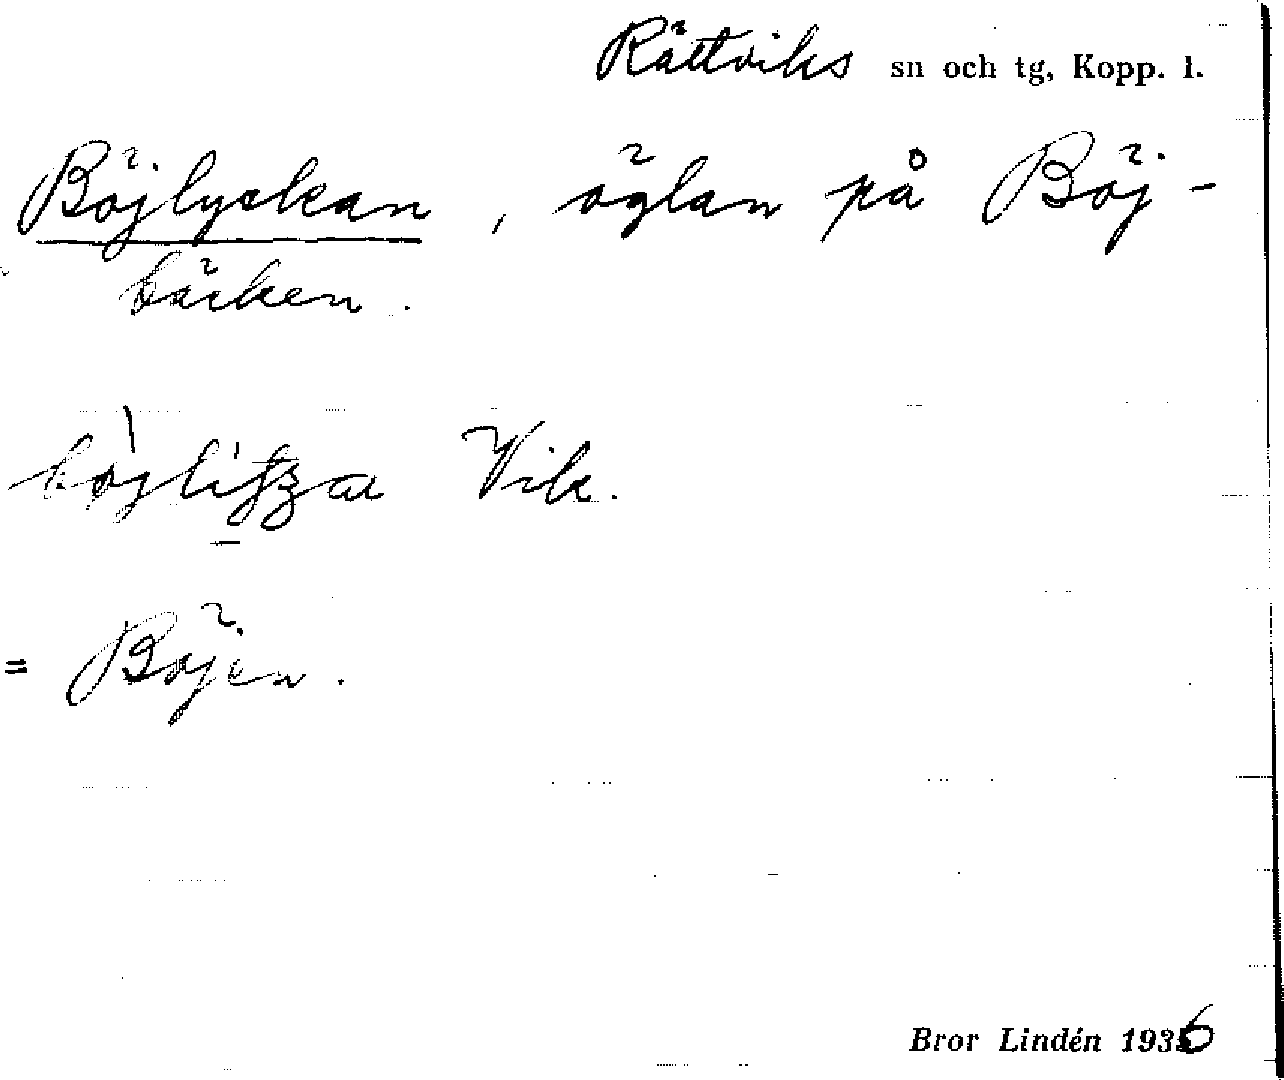 Rättviks sn och tg, Kopp. l.
Böjlyckan, öglan på Böj-
bäcken.
Vik.
= Böjen.
Bror Lindén 1936